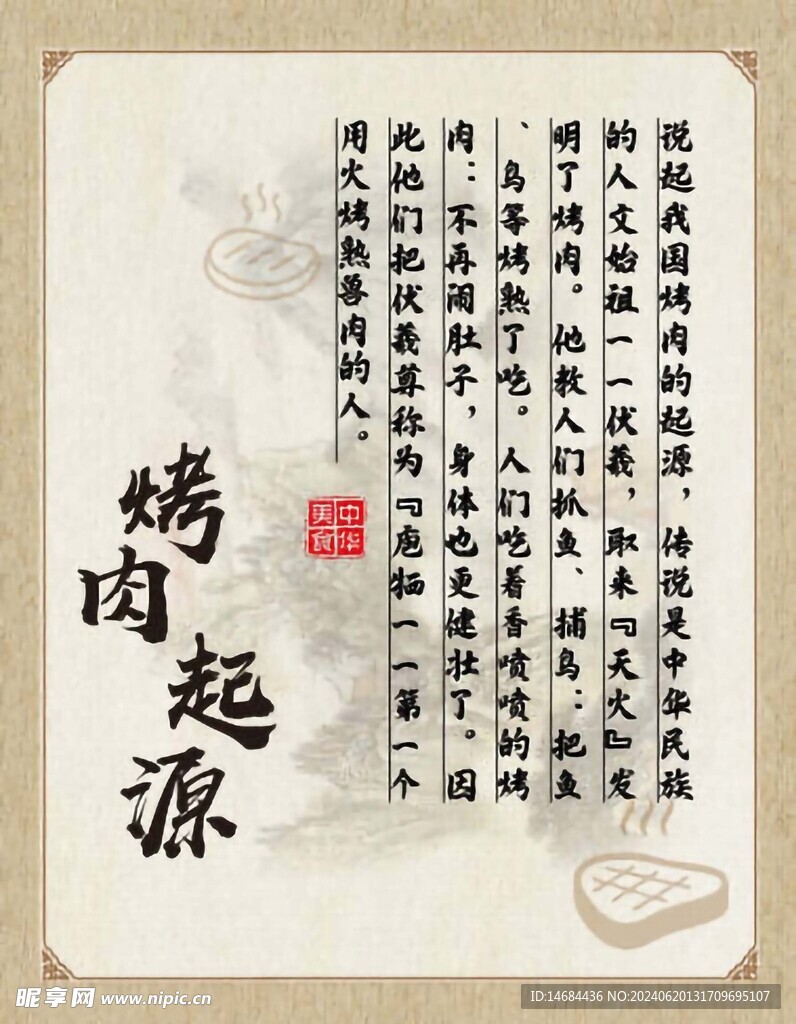 说起我国烤肉的起源，传说是中华民族
的人文始祖一一伏羲，取来『天火』发
明了烤肉。他教人们抓鱼、捕鸟：把鱼
、鸟等烤熟了吃。人们吃着香喷喷的烤
肉：不再闹肚子，身体也更健壮了。因
此他们把伏羲尊称为『庖牺一一第一个
用火烤熟兽肉的人。
中华
美食
烤肉起源
昵享网 www.nipic.cn
ID:14684436 NO:20240620131709695107